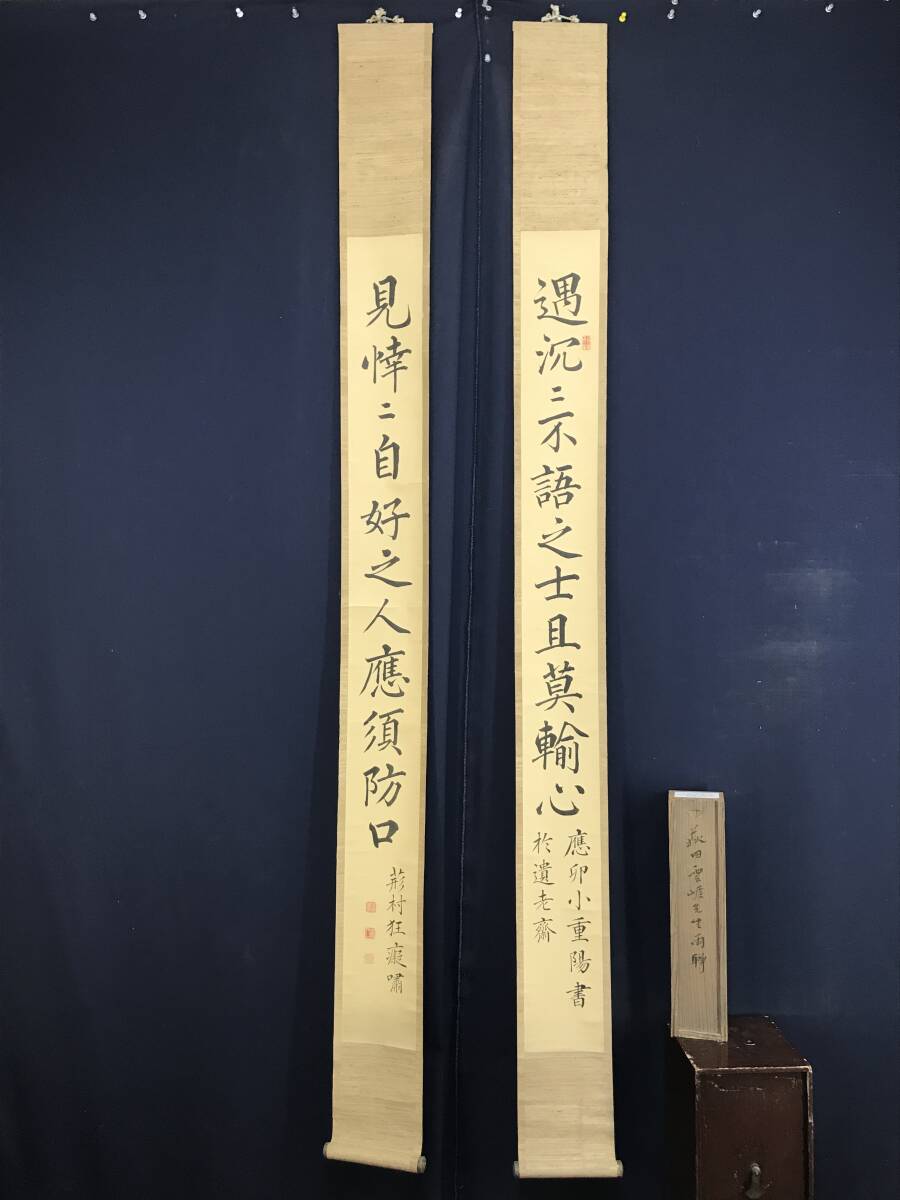 遇沉〻不語之士且莫輸心
應卯小重陽書
於遺老齋
見悻〻自好之人應須防口
荊村狂癡嘯
田雲崕先生両聯